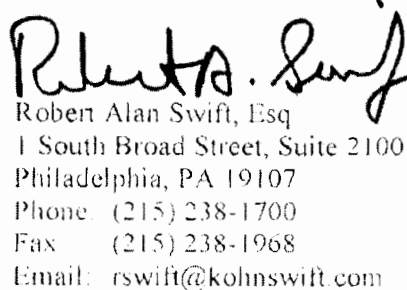 Robert A. Swift
Robert Alan Swift, Esq
1 South Broad Street, Suite 2100
Philadelphia, PA 19107
Phone: (215) 238-1700
Fax (215) 238-1968
Email: rswift@kohnswift.com